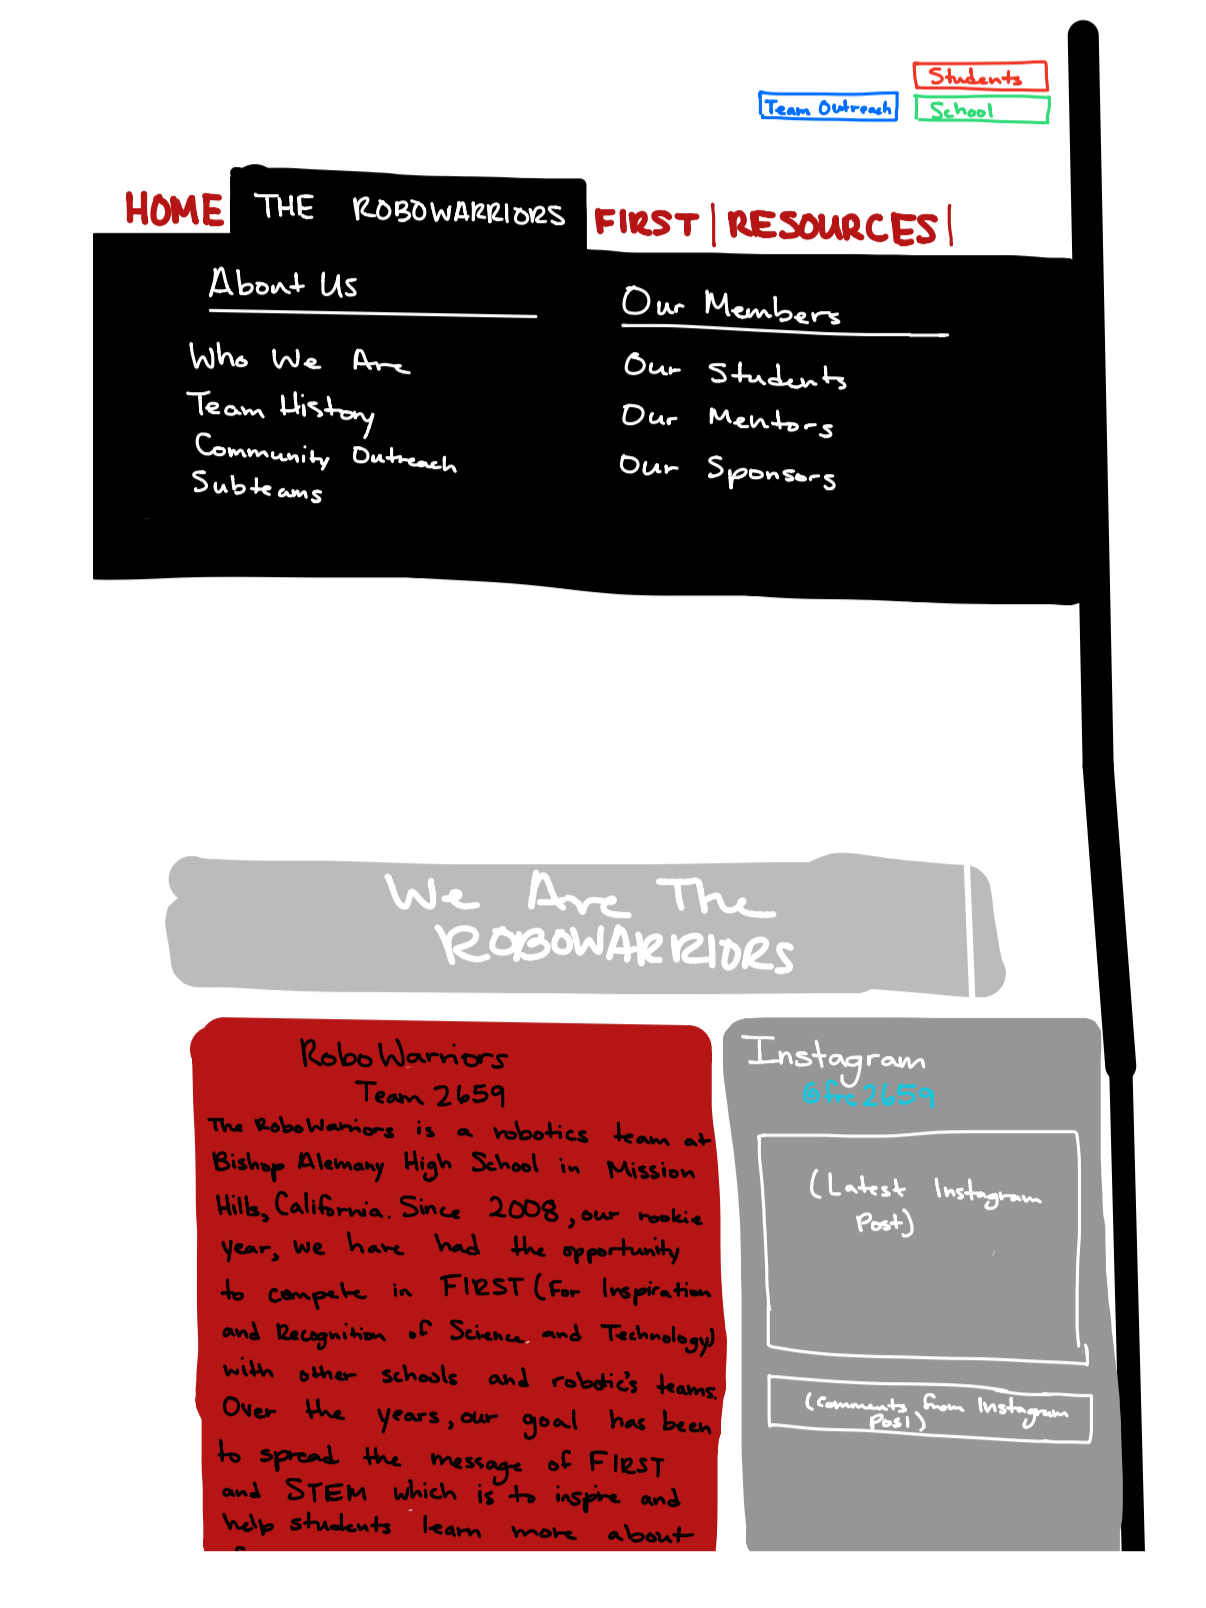 Students
Team Outreach
School
HOME
THE ROBOWARRIORS
FIRST | RESOURCES |
About Us
Our Members
Who We Are
Team History
Community Outreach
Subteams
Our Students
Our Mentors
Our Sponsors
We Are The
ROBOWARRIORS
RoboWarriors
Team 2659
The RoboWarriors is a robotics team at
Bishop Alemany High School in Mission
Hills, California. Since 2008, our rookie
year, we have had the opportunity
to compete in FIRST (For Inspiration
and Recognition of Science and Technology)
with other schools and robotic's teams.
Over the years, our goal has been
to spread the message of FIRST
and STEM which is to inspire and
help students learn more about
Instagram
@frc2659
(Latest Instagram
Post)
(Comments from Instagram
Post)